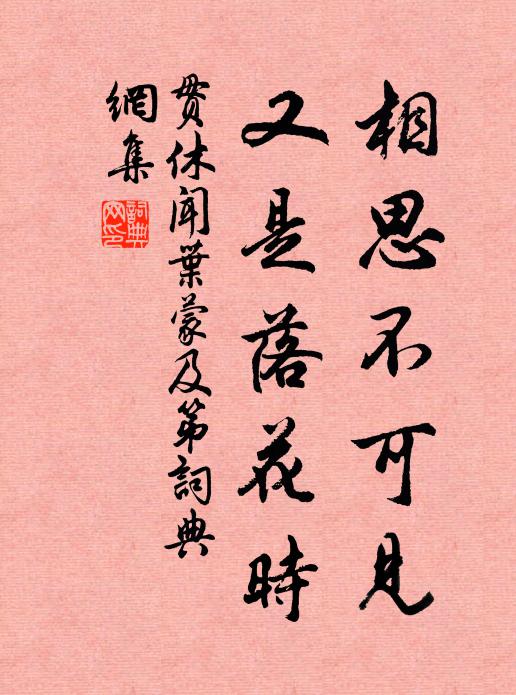 相思不可見
又是落花時
貫休聞葉蒙及第詞典
網集
詞典
网印